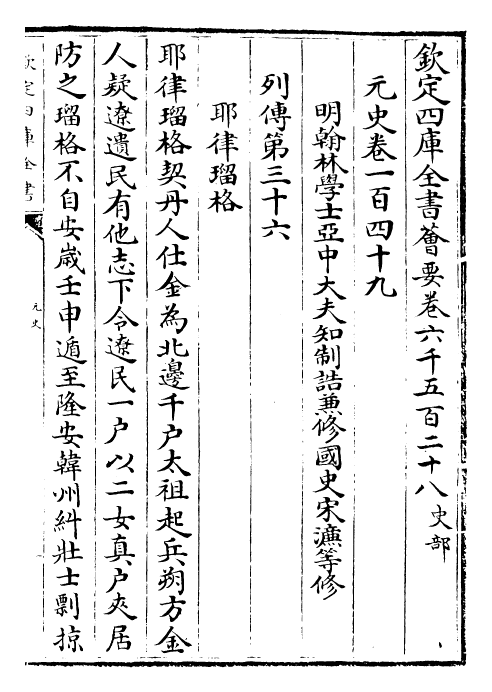 欽定四庫全書薈要卷六千五百二十八 史部
元史卷一百四十九
明翰林學士亞中大夫知制誥兼修國史宋濂等修
列傳第三十六
耶律瑠格
耶律瑠格契丹人仕金為北邊千户太祖起兵朔方金
人疑遼遺民有他志下令遼民一户以二女真户夾居
防之瑠格不自安歲壬申遁至隆安韓州糾壯士剽掠
欽定四庫全書
元史